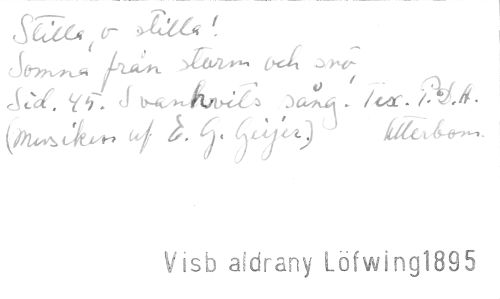 Stilla, o stilla!
Somna från storm och snö,
Sid. 45. Svanhvits sång. Tex. P.D.A.
(Musiken af E. G. Geijer.) Atterbom.
Visb aldrany Löfwing1895